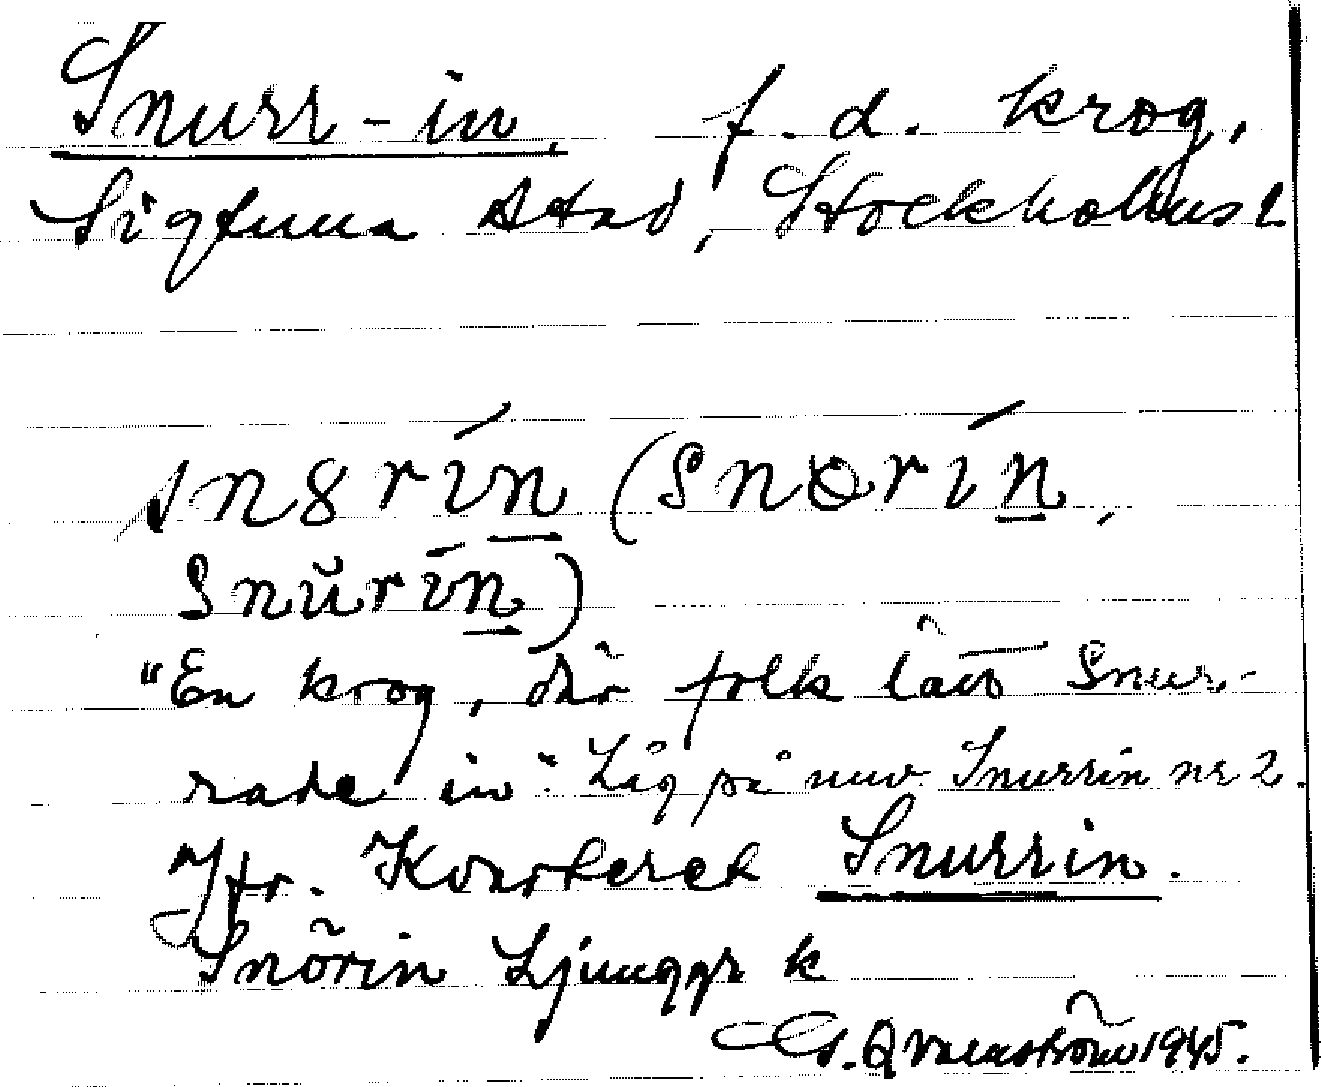 Snurr-in, f.d. krog,
Sigtuna stad, Stockholms l
sn8rín (snørín,
snŭrín)
"En krog, där folk lätt snur-
rade in". Låg på nuv. Snurrin nr 2.
Jfr. Kvarteret Snurrin.
Snörin Ljunggr k
G. Qvarnström 1945.